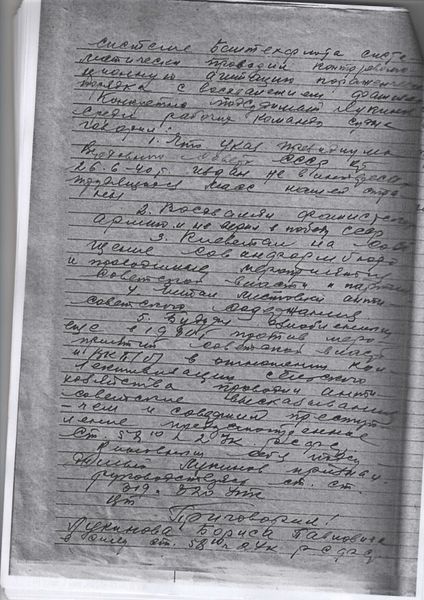 системе Башнефлота систе
матически проводил контррево
люционную агитацию пораженческ
порядка с восхвалением фашизма
Конкретно подсудимый Лукинов
среди рабочих команды судна
говорил:
1. Что указ президиума
Верховного Совета СССР от
26-6-40г. издан не в интересах
трудящихся масс нашей стра
ны
2. Восхвалял фашистскую
армию и не верил в победу СССР
3. Клеветал на
и проводимые мероприятия
советской власти и партии
4. Читал листовки анти
советского содержания
5. Будучи
еще в против меро
приятий советской власти
и ВКП/б/ в отношении кол
лективизации сельского
хозяйства проводил анти
советские высказывания
чем и совершил преступ
ление предусмотренное
ст. 58-10 ч 2 УК РСФСР
Виновным себя
Лукинов признал
руководствуясь ст. ст.
319-320 УПК
Приговорил:
Лукинова Бориса Павловича
в силу ст. 58-10 ч 2 УК РСФСР